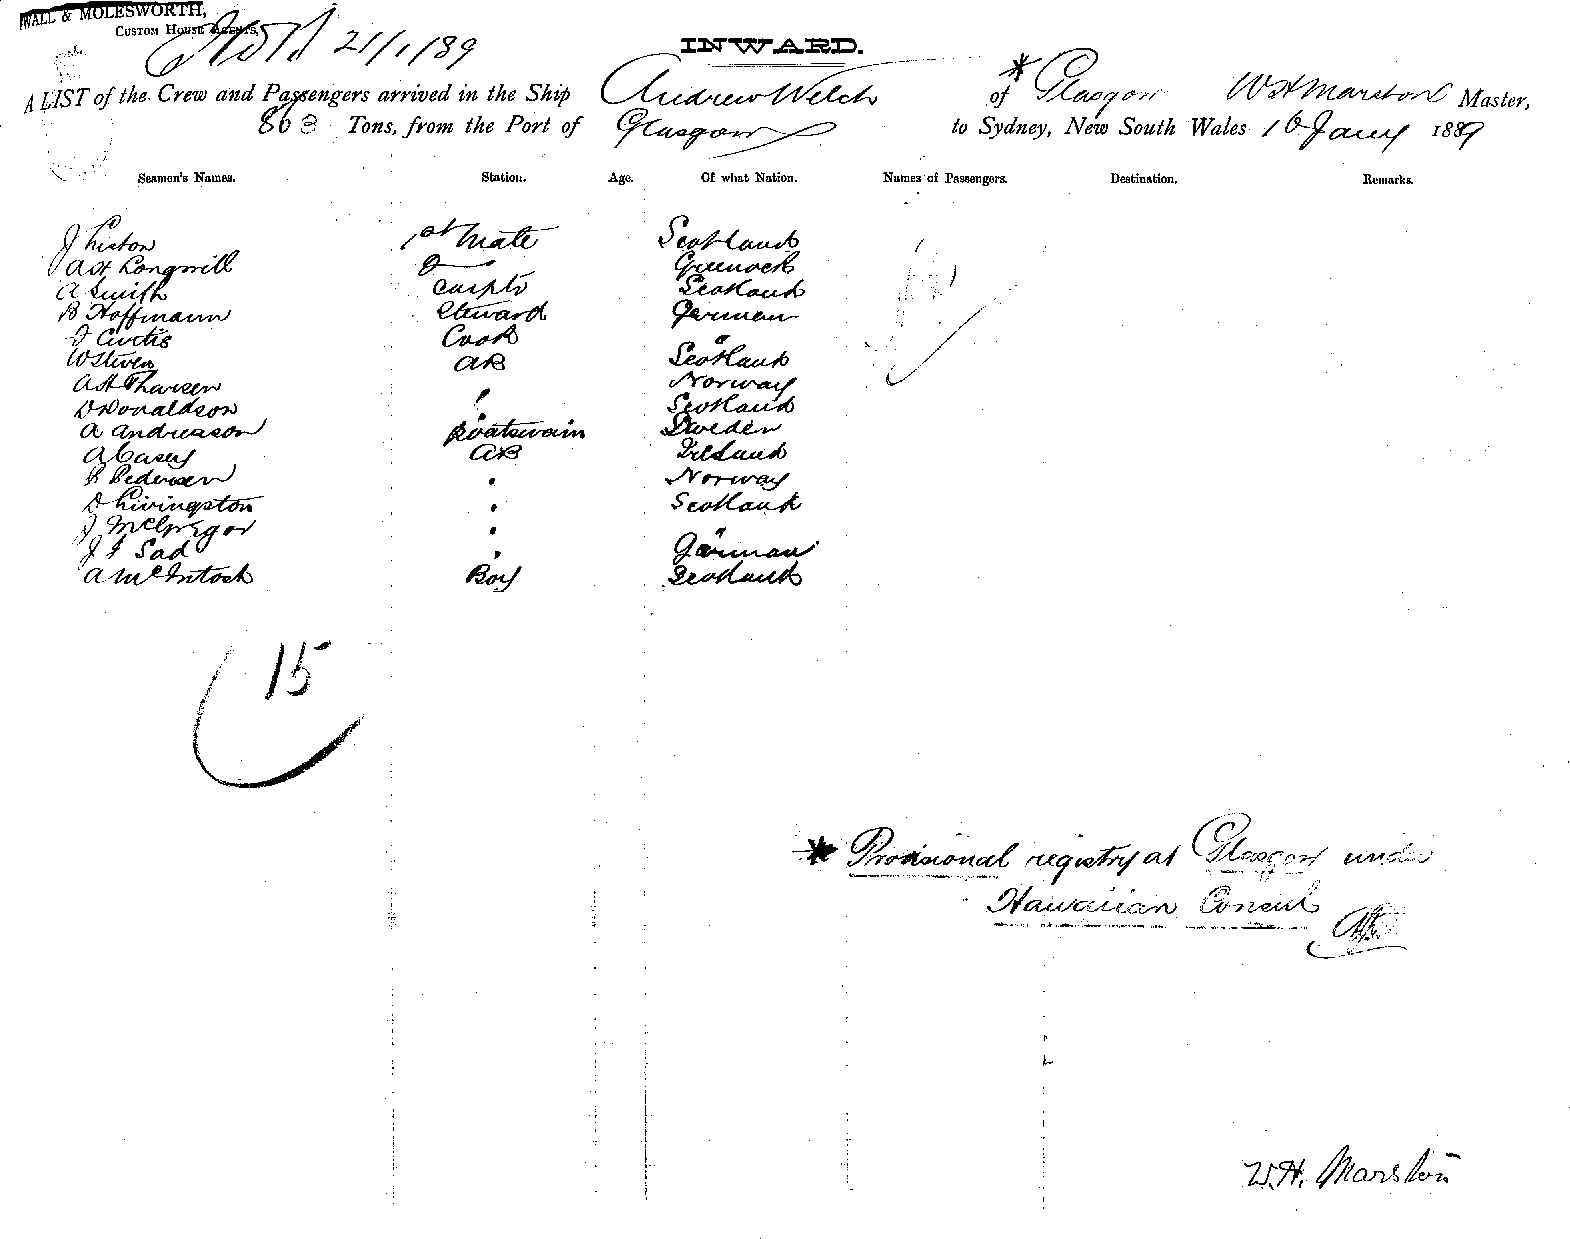 WALL & MOLESWORTH,
CUSTOM HOUSE AGENTS,
21/1/89
INWARD.
A LIST of the Crew and Passengers arrived in the Ship Andrew Welch of * Glasgow W H Marston Master,
863 Tons, from the Port of Glasgow to Sydney, New South Wales 16 Jany 1889
Seamen's Names. Station. Age. Of what Nation. Names of Passengers. Destination. Remarks.
J Liston 1st Mate Scotland
A H Longmill 2 — Greenock
A Smith Carptr Scotland
B Hoffmann Steward German
J Curtis Cook "
W Steven AB Scotland
A H Tharsen " Norway
D Donaldson " Scotland
A Andreason Boatswain Sweden
A Casey AB Ireland
P Pedersen " Norway
D Livingston " Scotland
J McGregor " "
J F Sad " German
A McIntosh Boy Scotland
15
* Provisional registry at Glasgow under
Hawaiian Consul
W.H. Marston